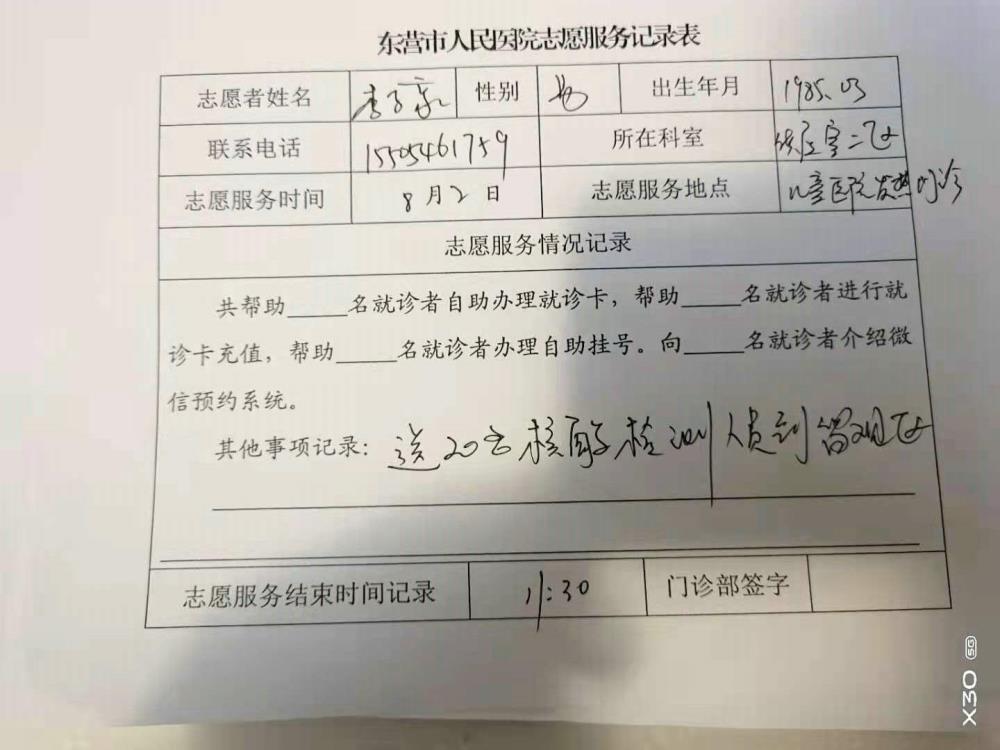 东营市人民医院志愿服务记录表
志愿者姓名 李 性别 出生年月 1985.03
联系电话 15505461759 所在科室 供应室二区
志愿服务时间 8月2日 志愿服务地点 儿童医院发热门诊
志愿服务情况记录
共帮助____名就诊者自助办理就诊卡，帮助____名就诊者进行就
诊卡充值，帮助____名就诊者办理自助挂号。向____名就诊者介绍微
信预约系统。
其他事项记录：送20名核酸检测人员到留观区
志愿服务结束时间记录 11:30 门诊部签字
X30 5G